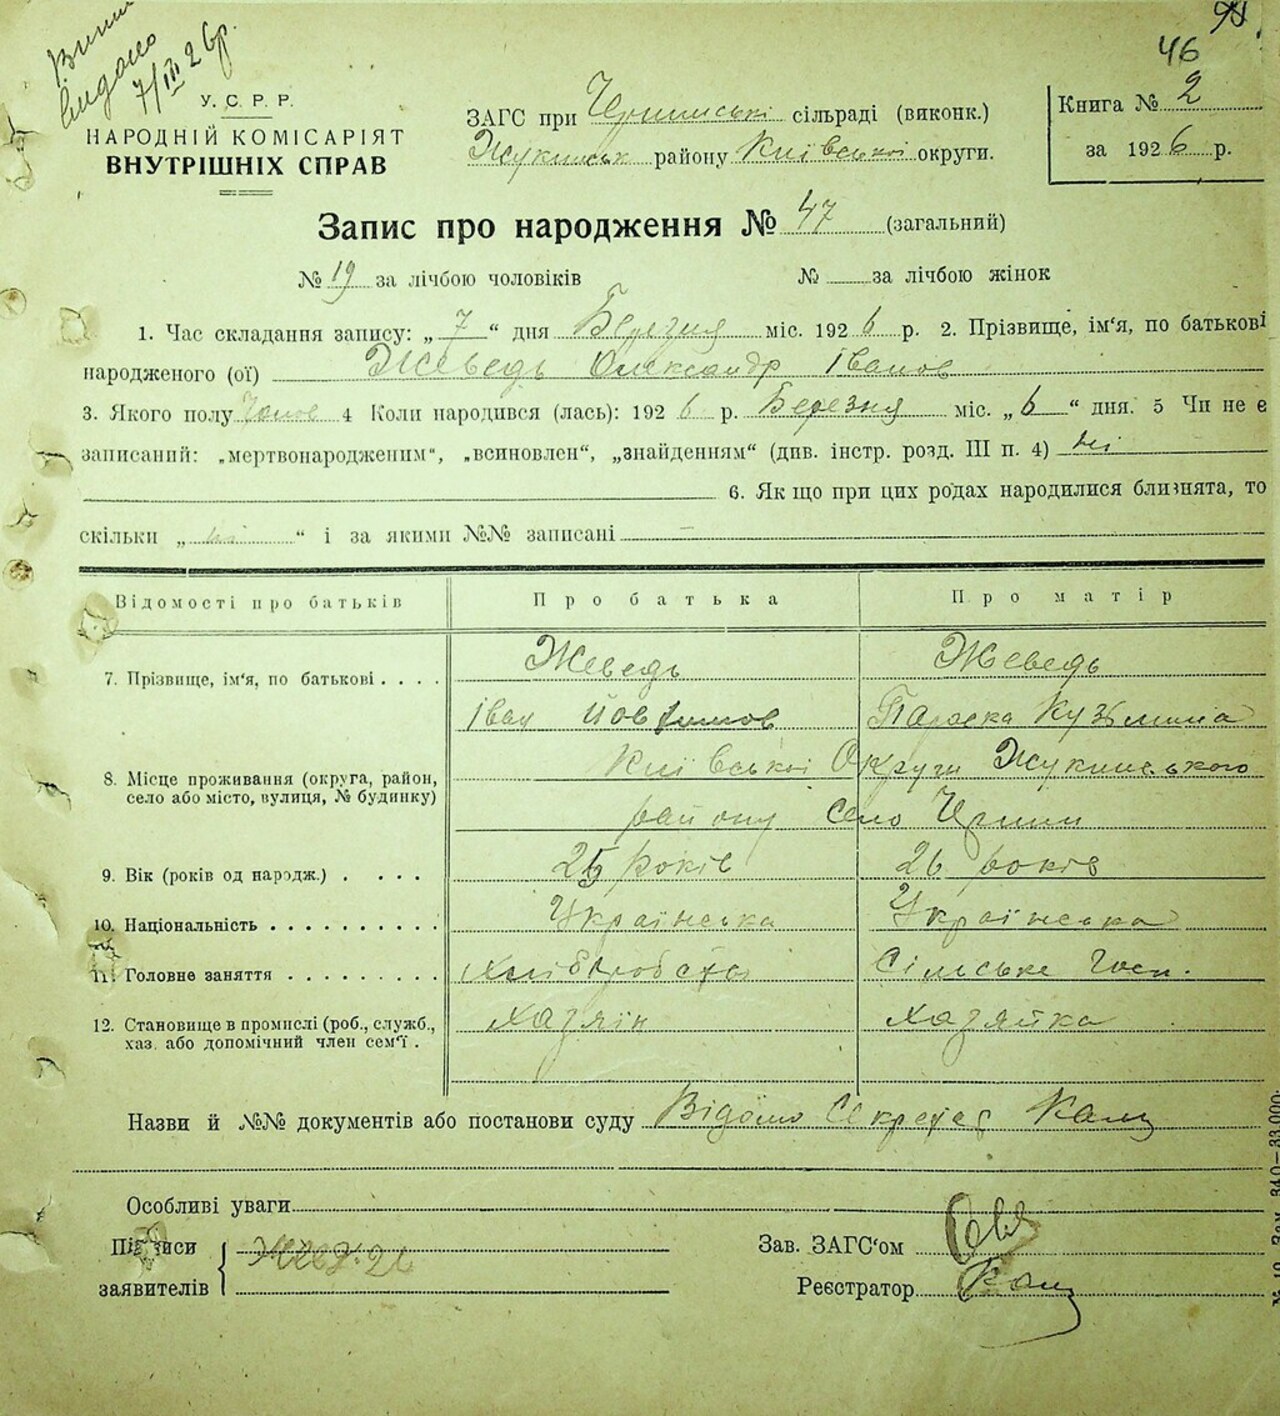 46
видано
7/III 26р.
У. С. Р. Р.
НАРОДНІЙ КОМІСАРІЯТ
ВНУТРІШНІХ СПРАВ
ЗАГС при сільраді (виконк.)
Жукинськ району Київської округи.
Книга № 2
за 1926 р.
Запис про народження № 47 (загальний)
№ 19 за лічбою чоловіків № за лічбою жінок
1. Час складання запису: „ 7 “ дня Березня міс. 1926 р. 2. Прізвище, ім‘я, по батькові
народженого (ої) Жеведь Олександр Іванов
3. Якого полу чолов 4 Коли народився (лась): 1926 р. Березня міс. „ 6 “ дня. 5 Чи не є
записаний: „мертвонародженим“, „всиновлен“, „знайденням“ (див. інстр. розд. III п. 4) ні
6. Якщо при цих родах народилися близнята, то
скільки „ ні “ і за якими №№ записані —
Відомості про батьків Про батька Про матір
Жеведь Жеведь
7. Прізвище, ім‘я, по батькові . . . .
Іван Йовхимов Параска Кузьмина
8. Місце проживання (округа, район, Київської Округи Жукинського
село або місто, вулиця, № будинку)
району Село
9. Вік (років од народж.) . . . . 25 років 26 років
10. Національність . . . . . . . . . . Українська Українська
11. Головне заняття . . . . . . . . . Хліборобство Сільське Госп.
12. Становище в промислі (роб., служб., хазяїн хазяйка
хаз. або допомічний член сем‘ї .
Назви й №№ документів або постанови суду Відомо Секретар
Особливі уваги
Підписи
заявителів
Зав. ЗАГС‘ом
Реєстратор